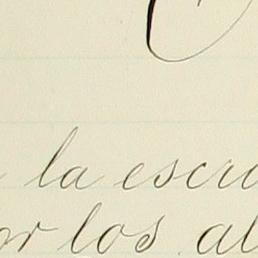 la escri
or los al